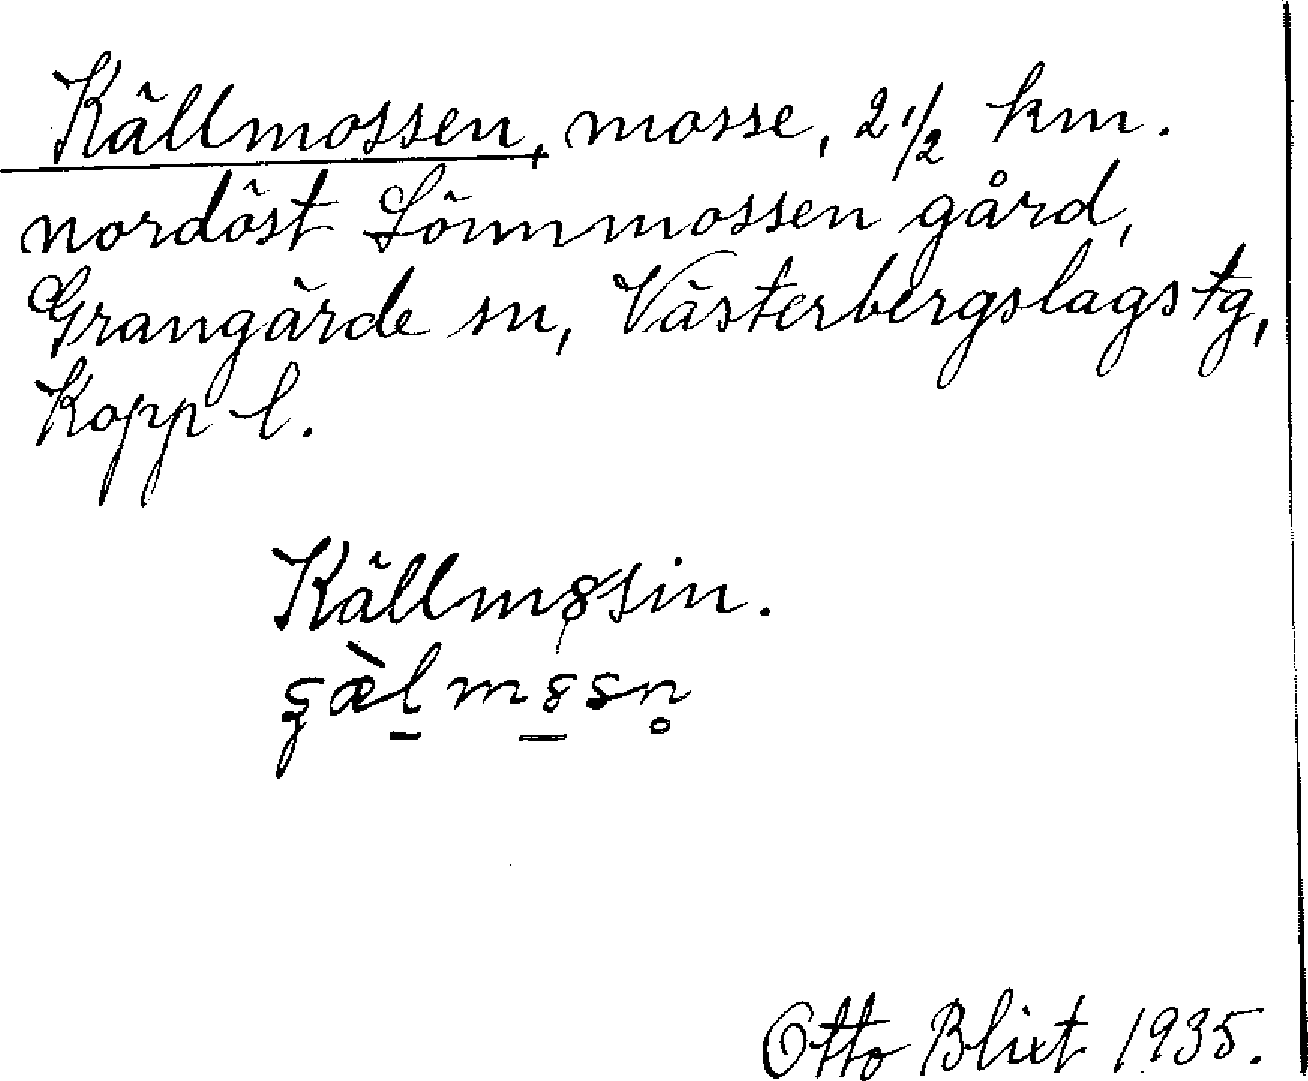 Källmossen, mosse, 2 1/2 km.
nordöst Lönnmossen gård,
Grangärde sn, Västerbergslags tg,
Kopp l.
Källmo̹sin.
Otto Blixt 1935.